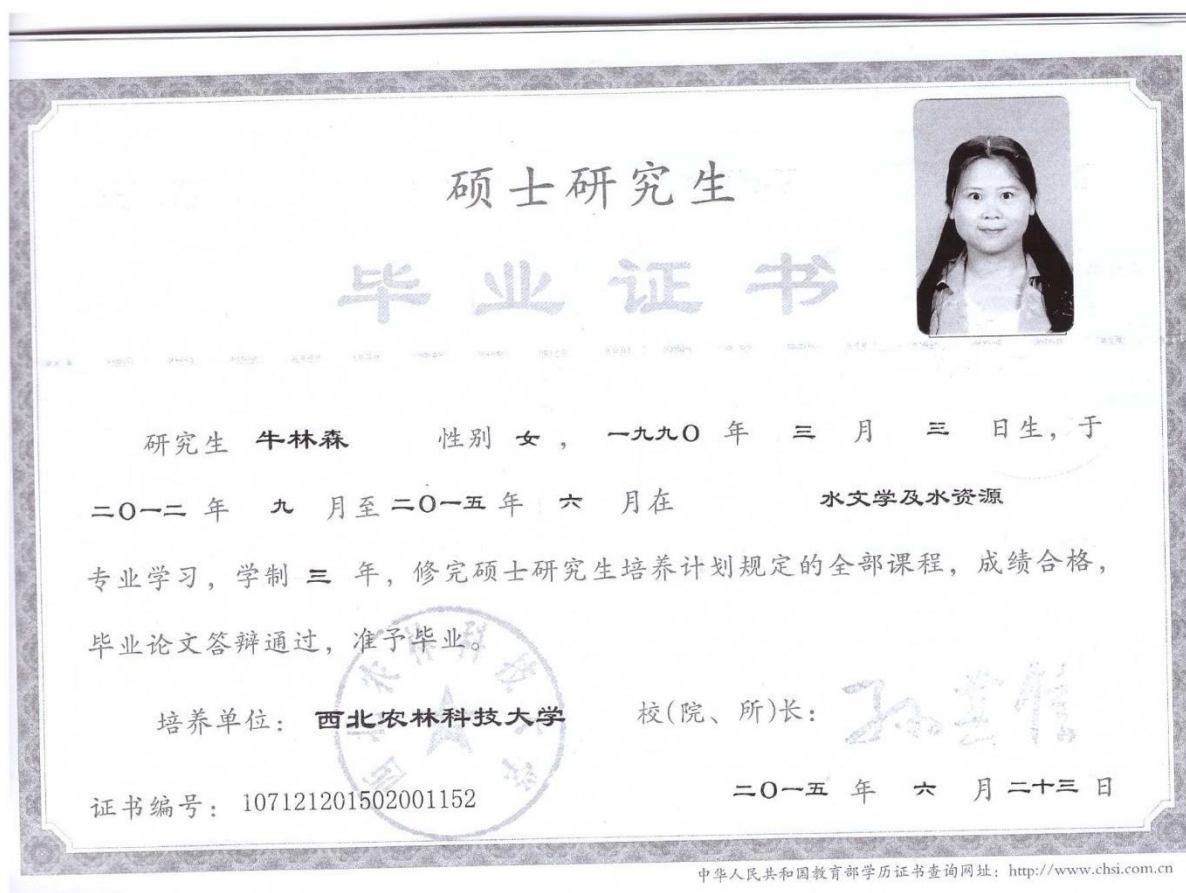 硕士研究生
毕业证书
研究生 牛林森 性别 女 ， 一九九〇 年 三 月 三 日生，于
二〇一二 年 九 月至 二〇一五 年 六 月在 水文学及水资源
专业学习，学制 三 年，修完硕士研究生培养计划规定的全部课程，成绩合格，
毕业论文答辩通过，准予毕业。
培养单位： 西北农林科技大学 校(院、所)长：
证书编号：107121201502001152 二〇一五 年 六 月 二十三 日
中华人民共和国教育部学历证书查询网址：http://www.chsi.com.cn
西北农林科技大学